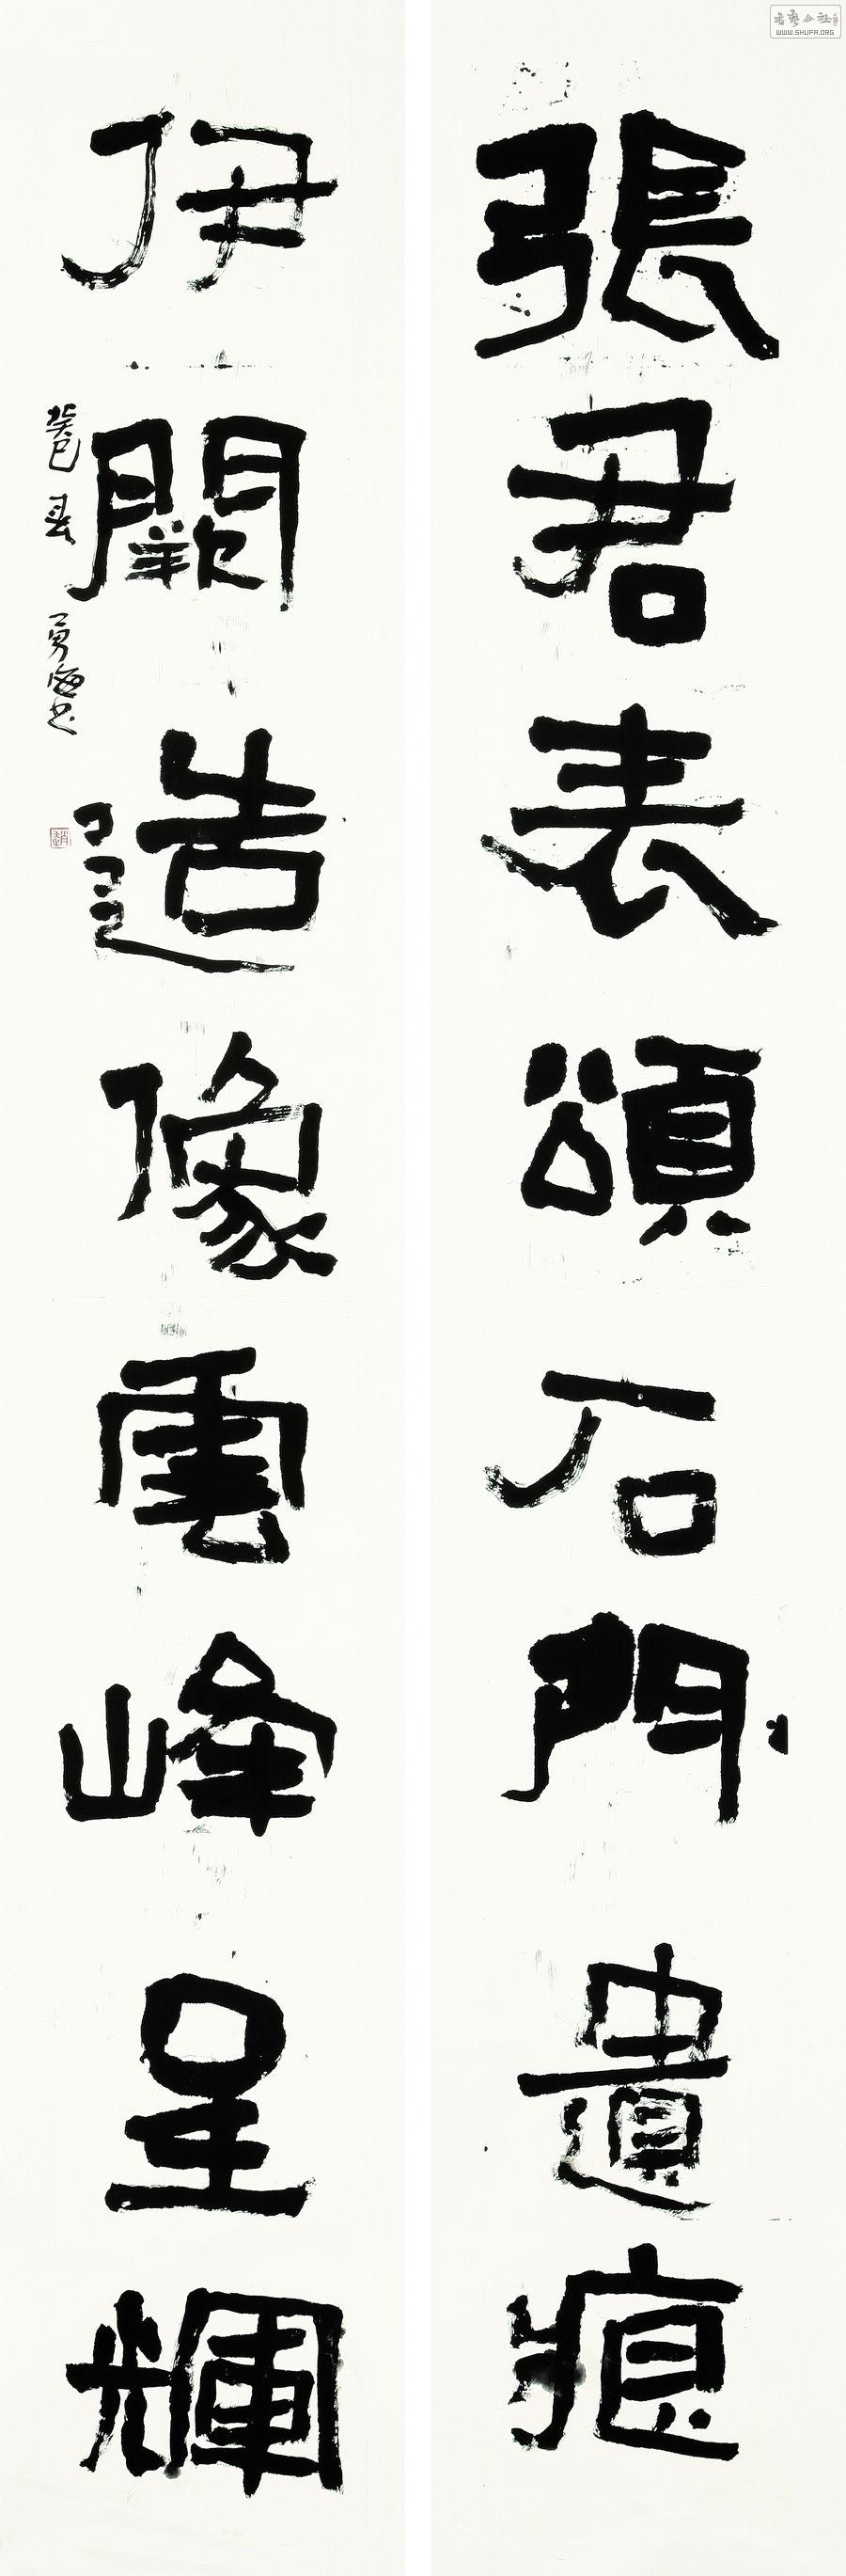 張君表頌石門遺痕
伊闕造像雲峰呈輝
癸巳春 勇海書
趙
書藝公社
WWW.SHUFA.ORG